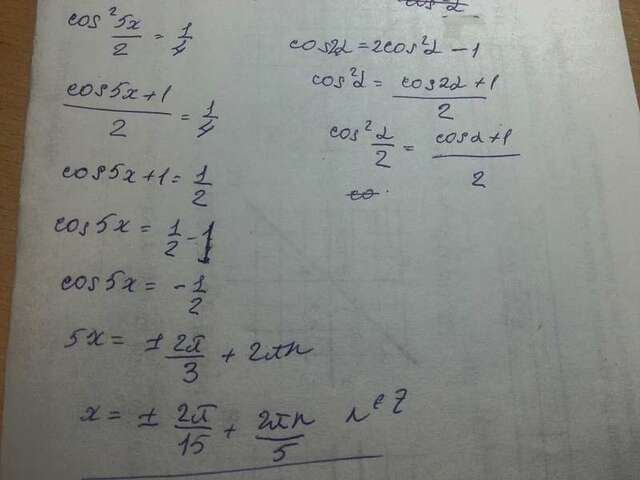 cos² 5x/2 = 1/4
(cos5x+1)/2 = 1/4
cos5x+1 = 1/2
cos5x = 1/2 - 1
cos5x = -1/2
5x = ± 2π/3 + 2πn
x = ± 2π/15 + 2πn/5 n∈Z
cos2α=2cos²α - 1
cos²α = (cos2α+1)/2
cos² α/2 = (cosα+1)/2